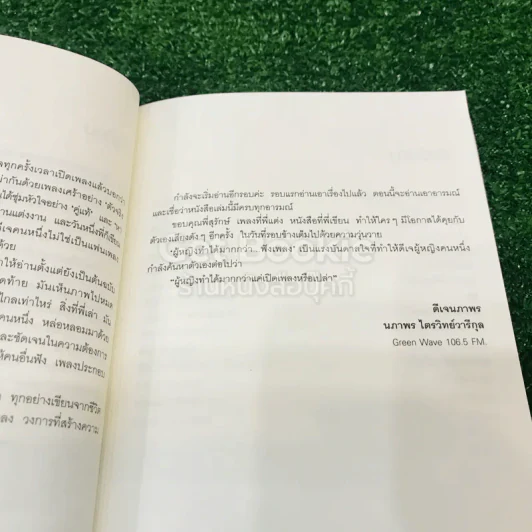 ลทุกครั้งเวลาเปิดเพลงแล้วบอกว่า
น่ากันด้วยเพลงเศร้าอย่าง
ได้ชุ่มหัวใจอย่าง "คู่แท้" และ
านแต่งงาน และวันหนึ่งพี่ก็เขียน
เจคนหนึ่งไม่ใช่เป็นแฟนเพลง
ด้วย
ให้อ่านตั้งแต่ยังเป็นต้นฉบับ
ดท้าย มันเห็นภาพไปหมด
ไกลเท่าไหร่ สิ่งที่พี่เล่า มัน
คนหนึ่ง หล่อหลอมมาด้วย
และชัดเจนในความต้องการ
ห้คนอื่นฟัง เพลงประกอบ
ทุกอย่างเขียนจากชีวิต
ลง วงการที่สร้างความ
กำลังจะเริ่มอ่านอีกรอบค่ะ รอบแรกอ่านเอาเรื่องไปแล้ว ตอนนี้จะอ่านเอาอารมณ์
และเชื่อว่าหนังสือเล่มนี้มีครบทุกอารมณ์
ขอบคุณพี่สุรักษ์ เพลงที่พี่แต่ง หนังสือที่พี่เขียน ทำให้ใครๆ มีโอกาสได้คุยกับ
ตัวเองเสียงดังๆ อีกครั้ง ในวันที่รอบข้างเต็มไปด้วยความวุ่นวาย
"ผู้หญิงทำได้มากกว่า.. ฟังเพลง" เป็นแรงบันดาลใจที่ทำให้ดีเจผู้หญิงคนหนึ่ง
กำลังค้นหาตัวเองต่อไปว่า
"ผู้หญิงทำได้มากกว่าแค่เปิดเพลงหรือเปล่า"
ร้านหนังสือบุ๊คกี้
ดีเจนภาพร
นภาพร ไตรวิทย์วารีกุล
Green Wave 106.5 FM.